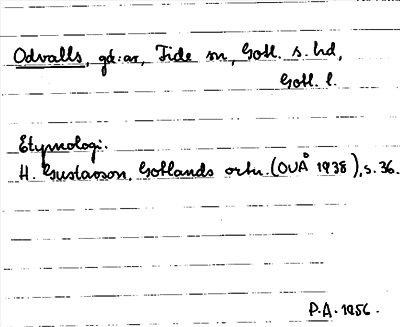 Odvalls, gd:ar, Fide sn, Gotl. s. hd,
Gotl. l.
Etymologi.
H. Gustavson, Gotlands ortn. (OUÅ 1938), s. 36.
P.A. 1956.